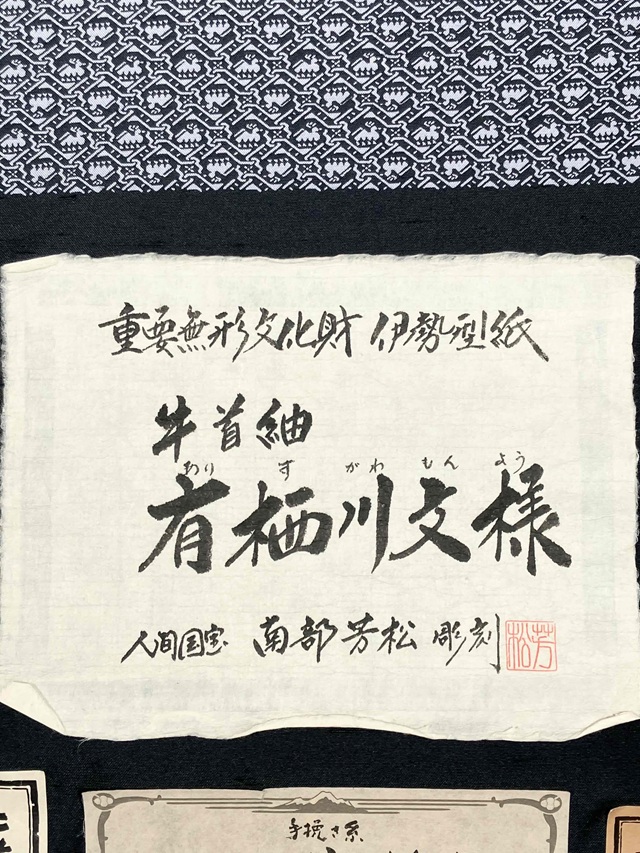 重要無形文化財 伊勢型紙
牛首紬
ありすがわもんよう
有栖川文様
人間国宝 南部芳松 彫刻
芳松
手挽き糸